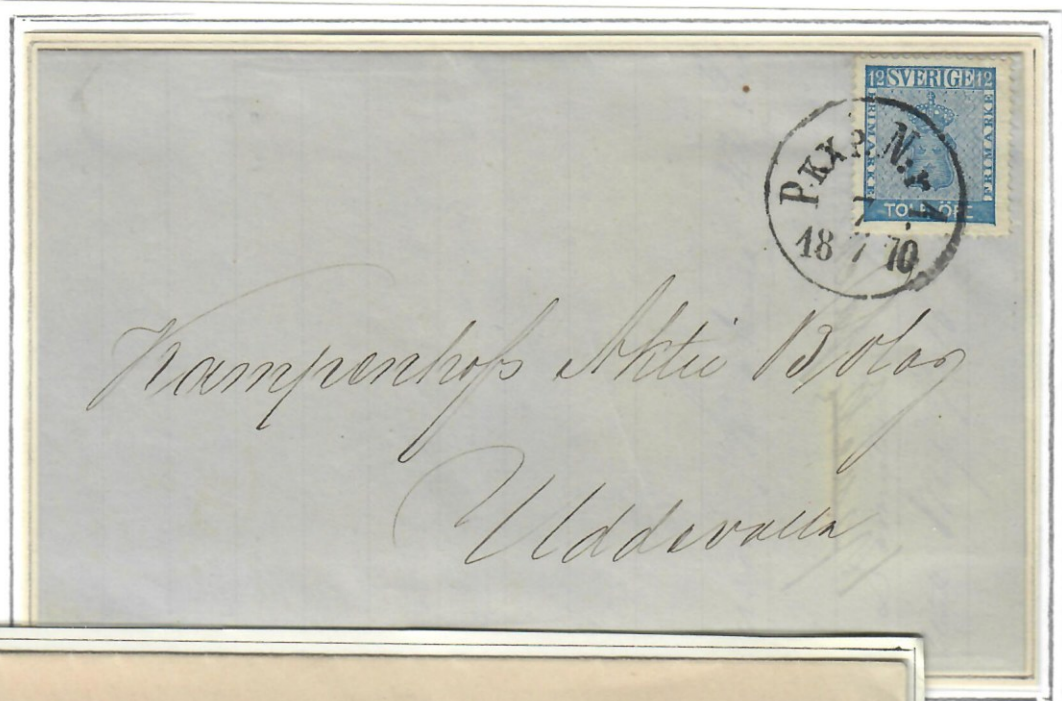 12 SVERIGE 12
FRIMÄRKE
FRIMÄRKE
TOLF ÖRE
P.K.X.P. N:r 1.
7
18 7 70
Kampenhofs Aktie Bolag
Uddevalla